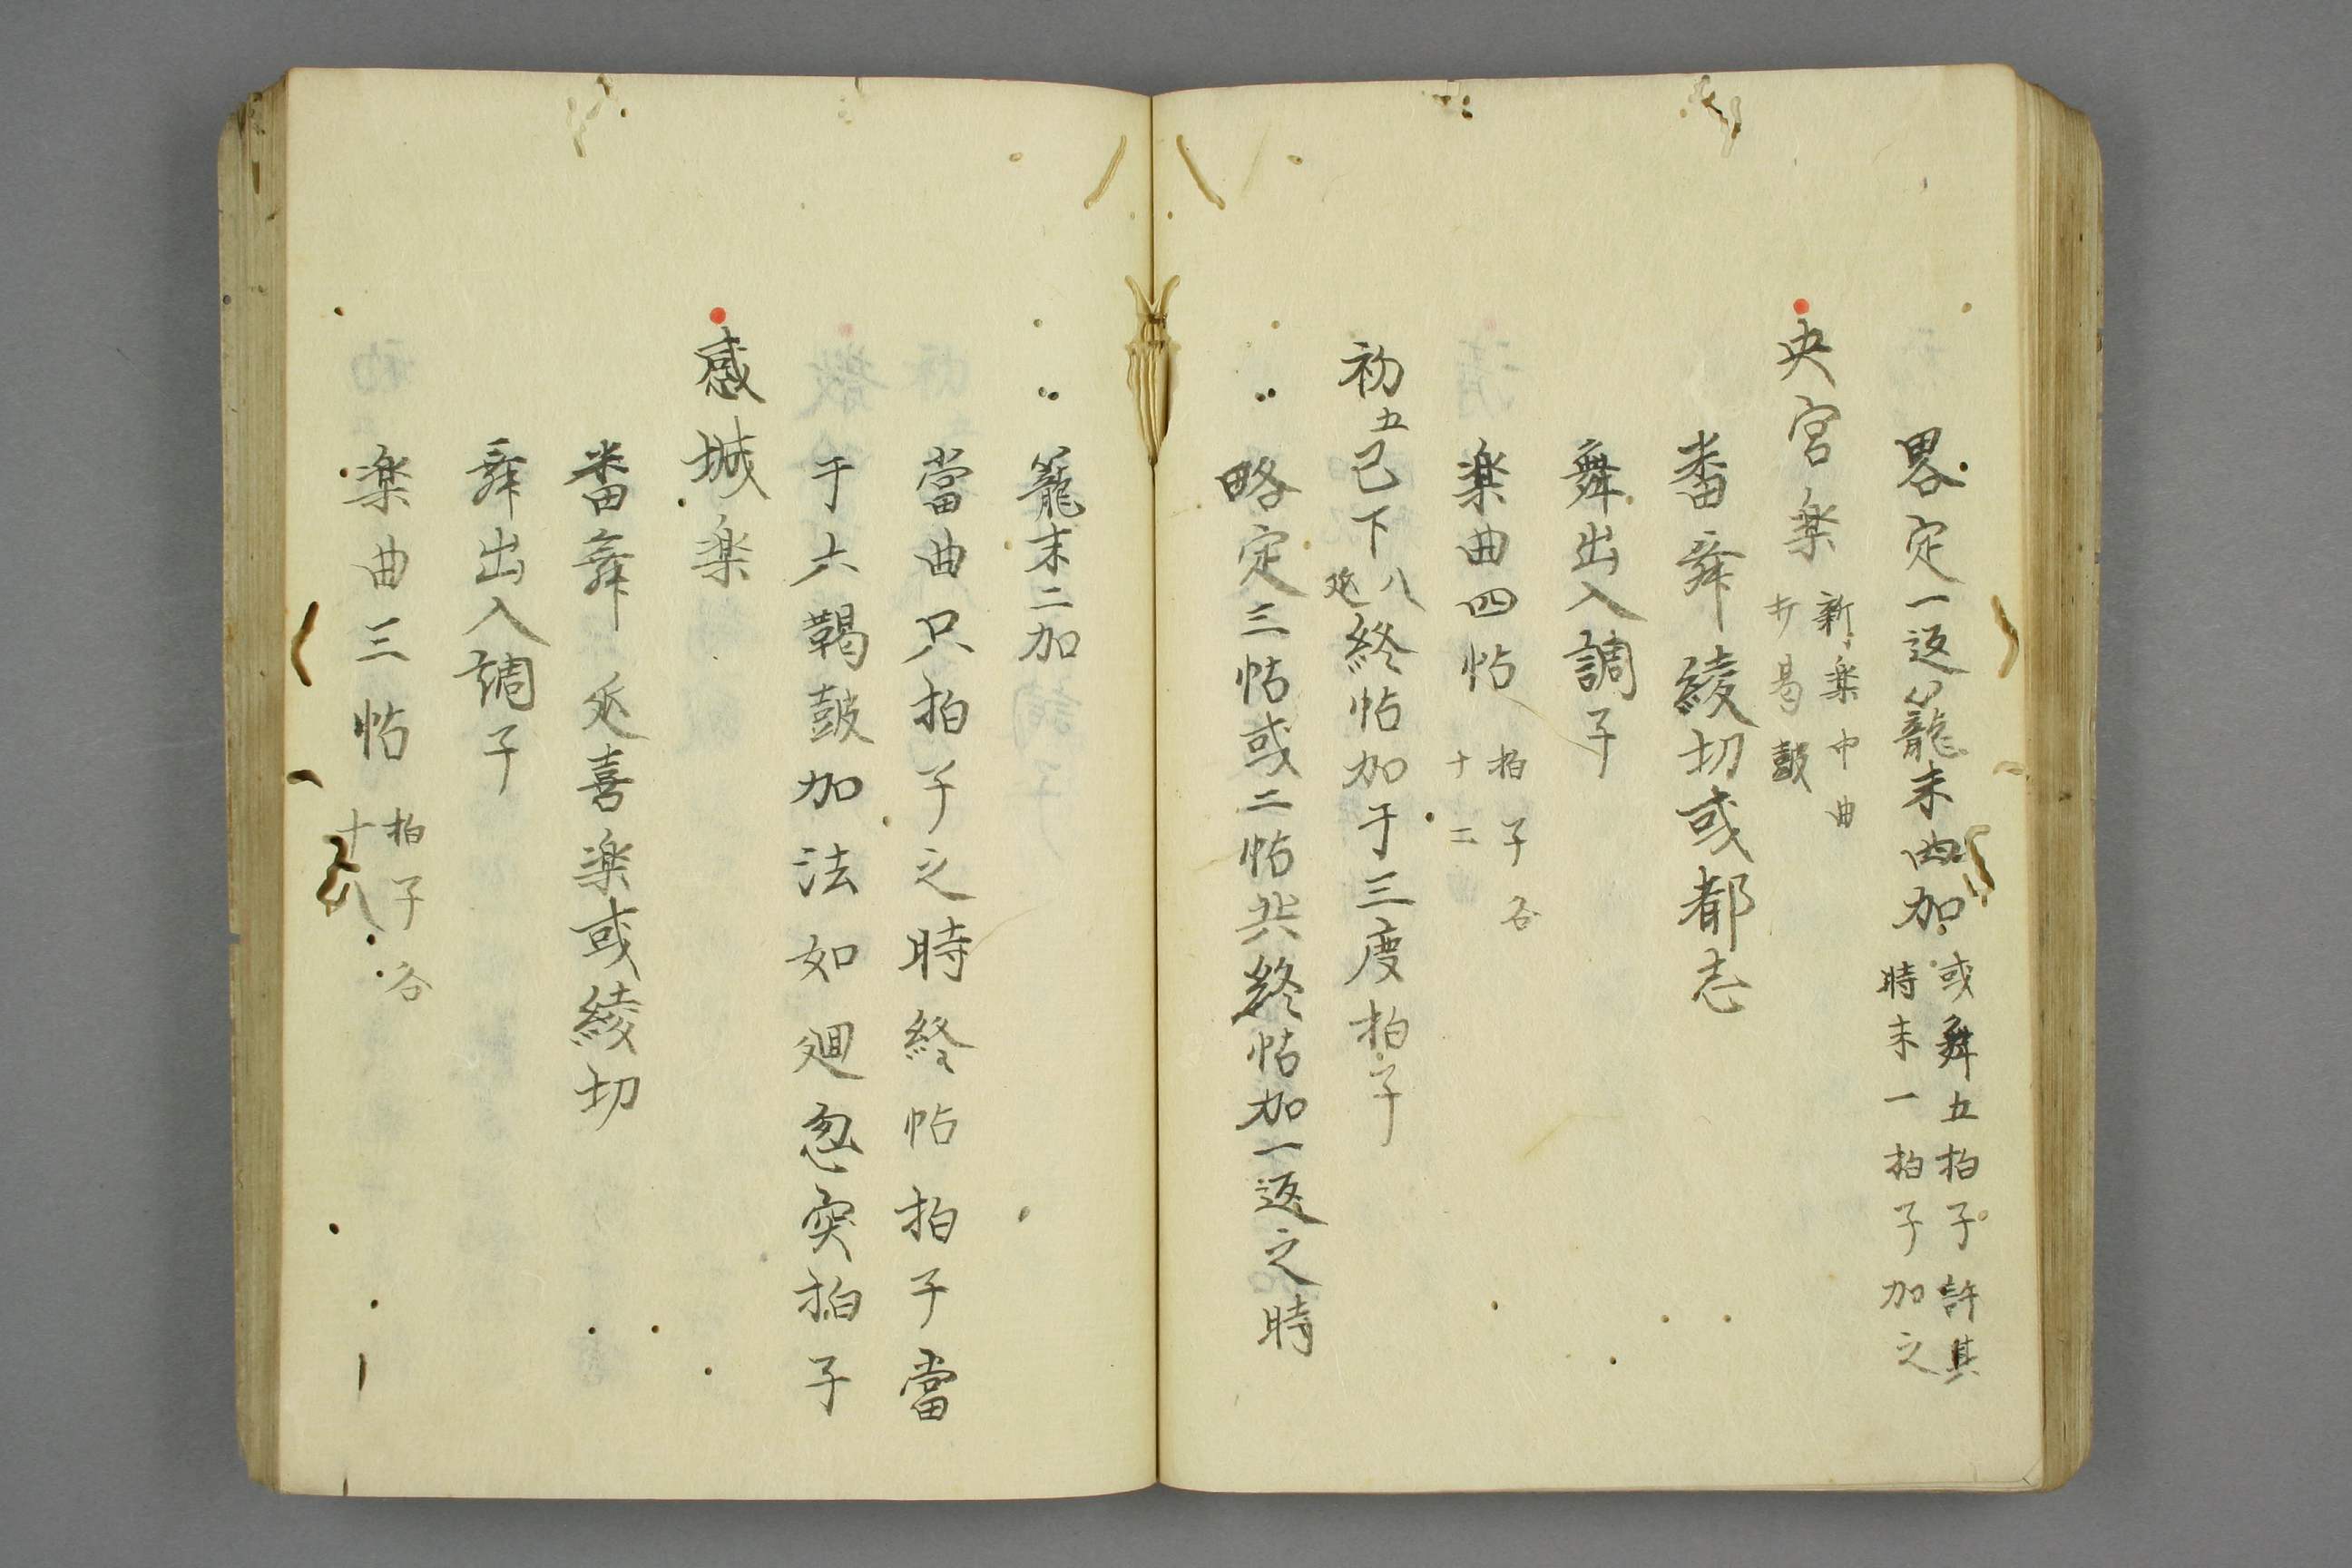 畧定一返籠末四加或舞五拍子許其
時末一拍子加之
央宮楽新楽中曲
有曷鼓
番舞綾切或都志
舞出入調子
楽曲四帖拍子各
十二
初五己下八
延終帖加于三度拍子
〻略定三帖或二帖共終帖加一返之時
〻籠末二加
當曲只拍子之時終帖拍子當
于六鞨鼓加法如廻忽突拍子
感城楽
番舞延喜楽或綾切
舞出入調子
楽曲三帖拍子各
十八